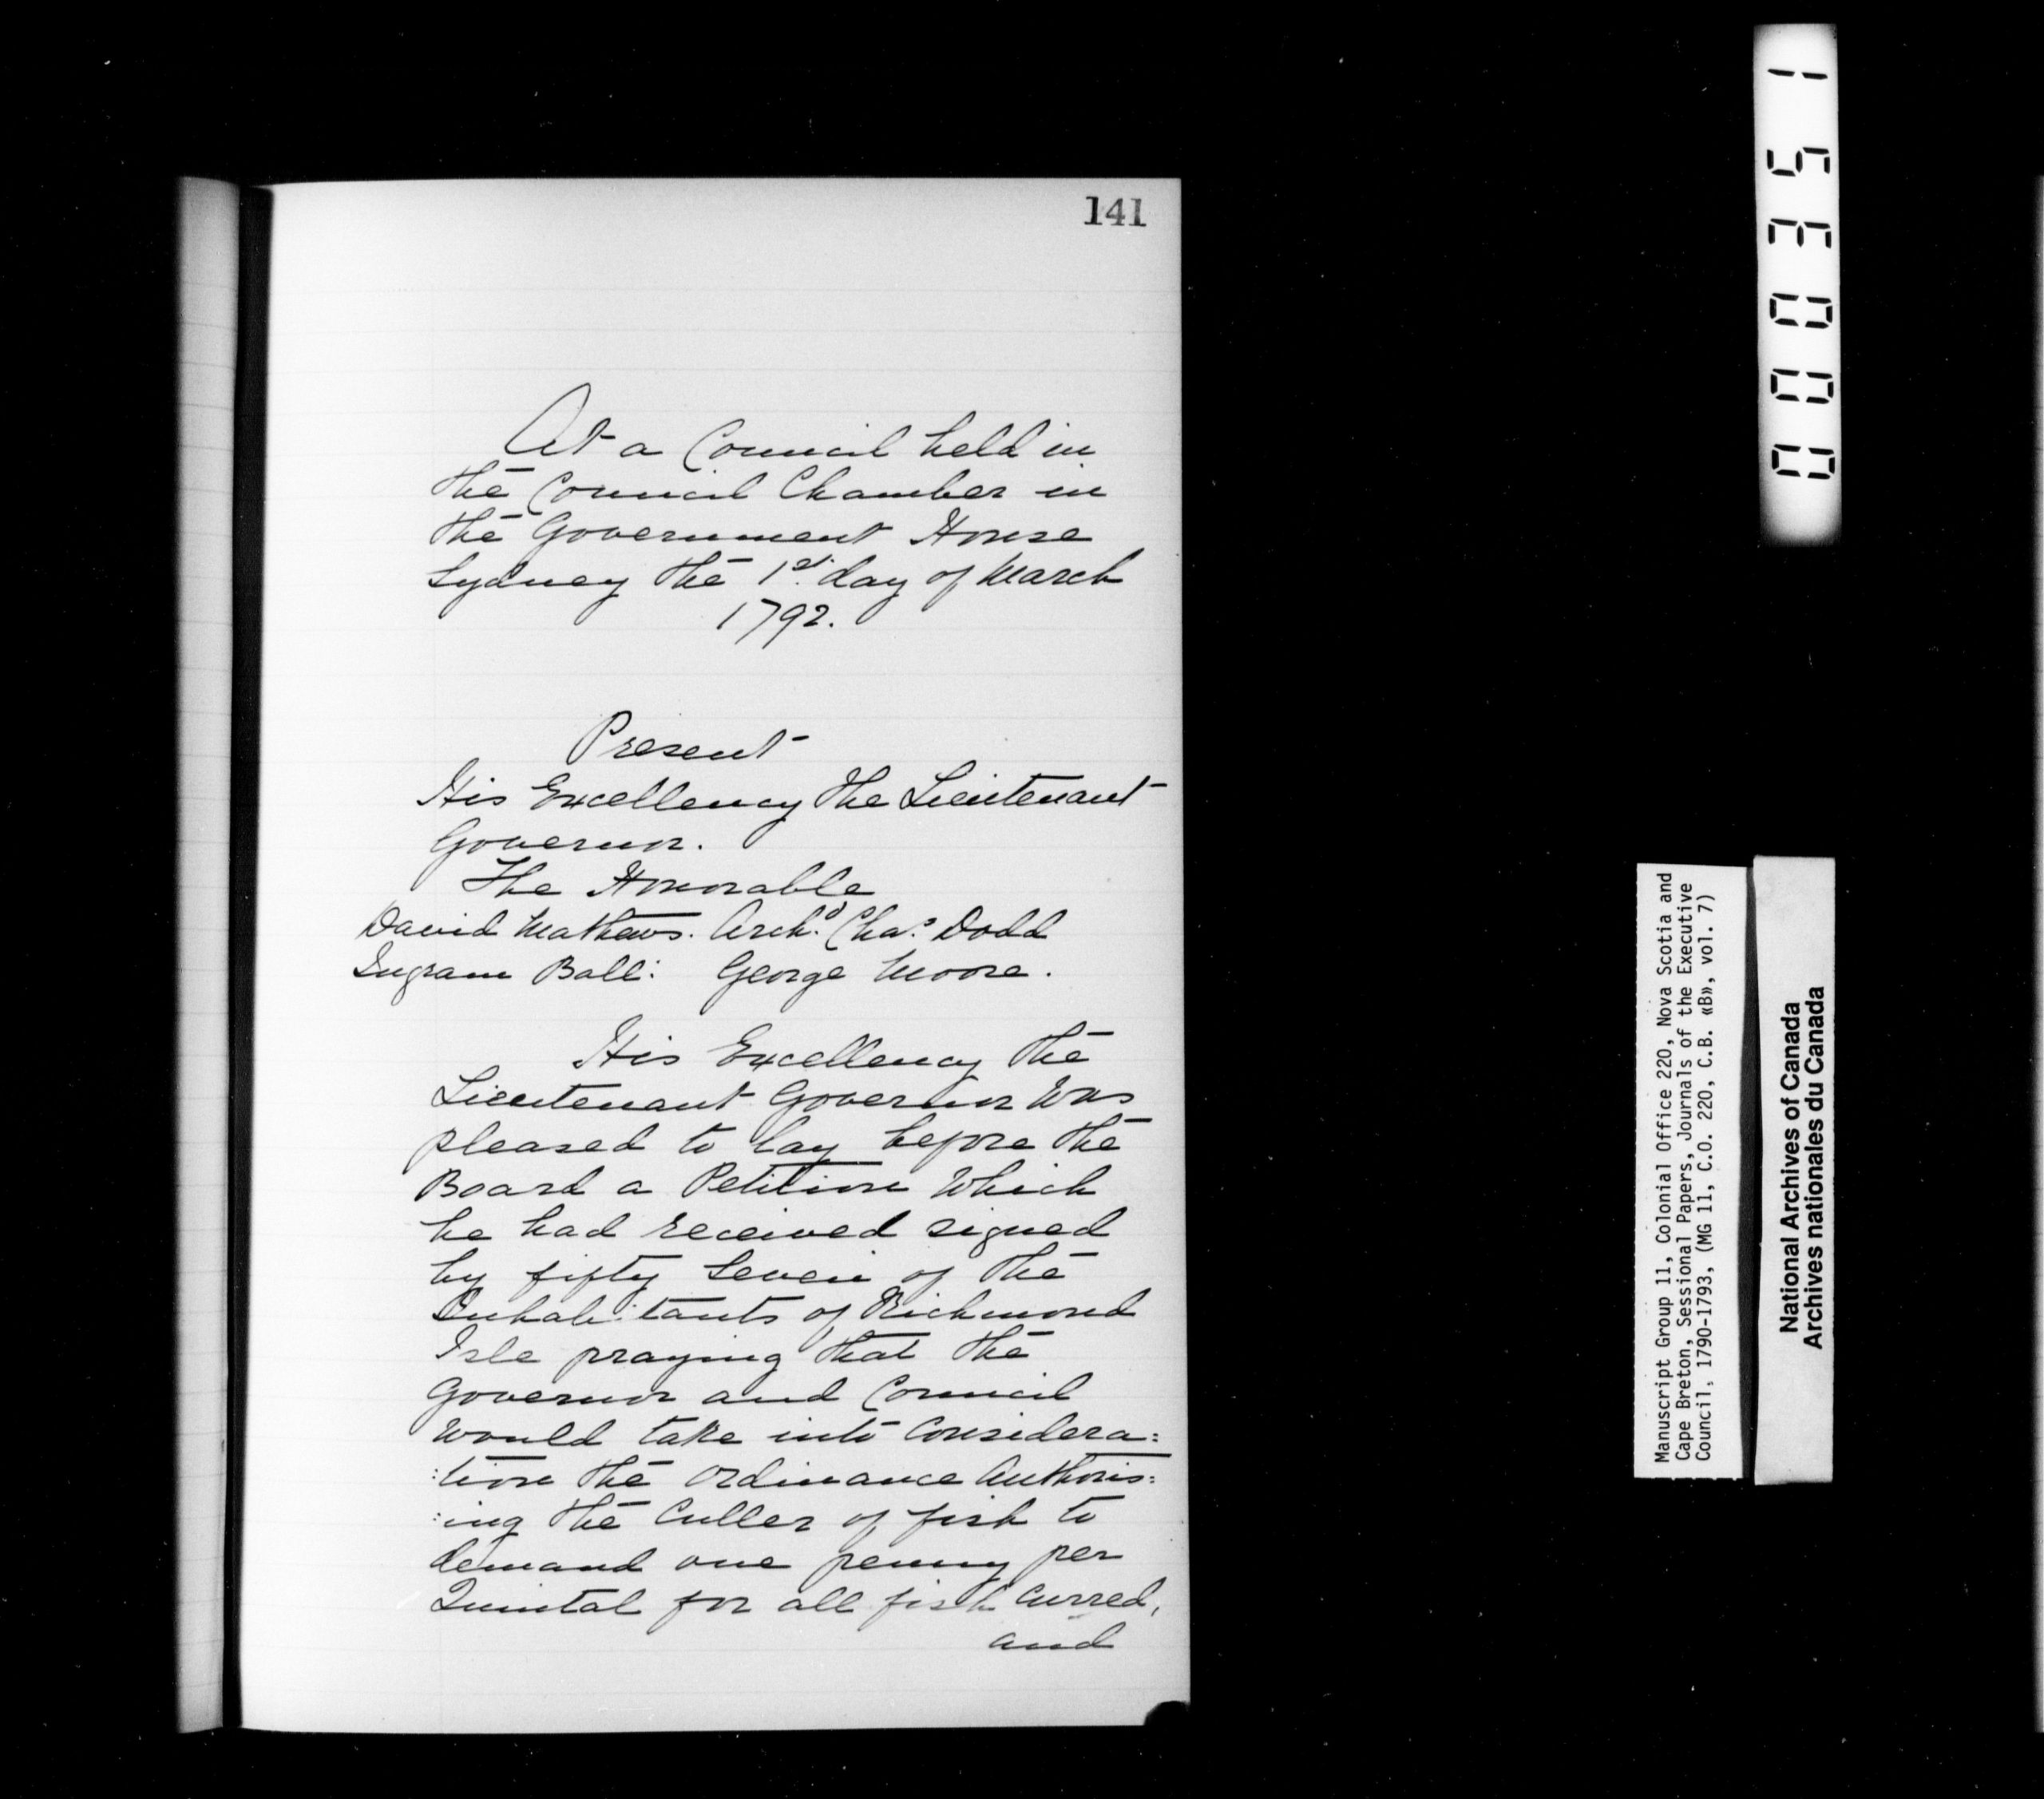 141
At a Council held in
the Council Chamber in
the Government House
Sydney the 1st. day of March
1792.
Present
His Excellency the Lieutenant
Governor.
The Honorable
David Mathews. Archd. Chas. Dodd
Ingram Ball: George Moore.
His Excellency the
Lieutenant Governor was
pleased to lay before the
Board a Petition which
he had received signed
by fifty Seven of the
Inhabitants of Richmond
Isle praying that the
Governor and Council
would take into Considera:
:tion the Ordinance Authoris:
:ing the Culler of fish to
demand one penny per
Quintal for all fish Curred,
and
000351
Manuscript Group 11, Colonial Office 220, Nova Scotia and
Cape Breton, Sessional Papers, Journals of the Executive
Council, 1790-1793, (MG 11, C.O. 220, C.B. «B», vol. 7)
National Archives of Canada
Archives nationales du Canada